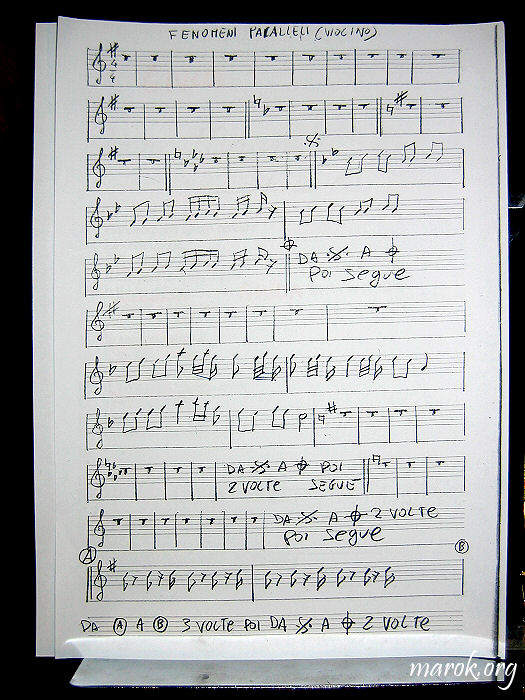 FENOMENI PARALLELI (VIOLINO)
DA 𝄋 A 𝄌
POI SEGUE
DA 𝄋 A 𝄌 POI
2 VOLTE SEGUE
DA 𝄋 A 𝄌 2 VOLTE
POI SEGUE
A
B
DA A A B 3 VOLTE POI DA 𝄋 A 𝄌 2 VOLTE
marok.org